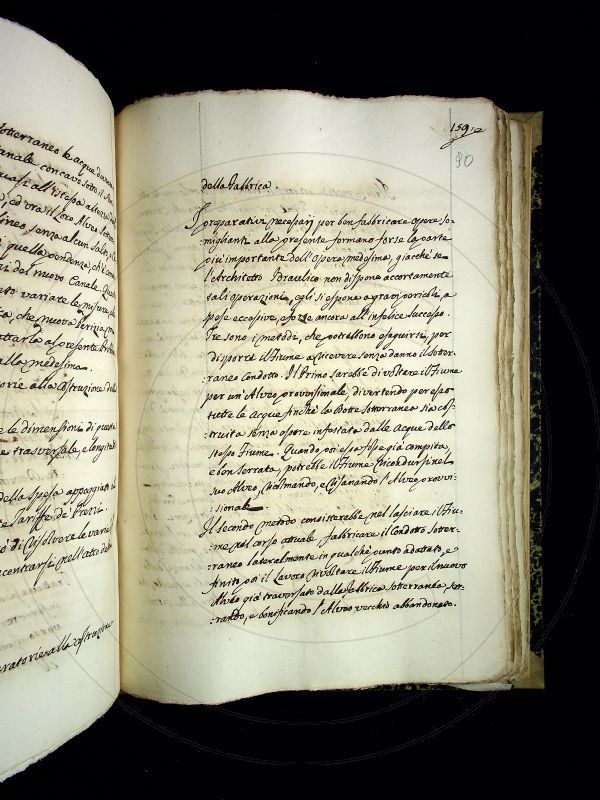 sotterraneo le acque
canale concavo sotto il
quasi all'istessa altezza
ed ora il loro Alveo
senza alcun salto
quella pendenza, ch'è
del nuovo Canale
variate le misure
che nuova Perizia
al presente
alla medesima.
alla Costruzione della
le dimensioni di questa
e trasversale, e longitud
della Spesa appoggiato
Tariffe de' Prezzi.
di risolvere le varie
incontrarsi nell'atto del
alla costruzione
159
90
della Fabbrica.
I preparativi necessarj per ben fabbricare opere so-
miglianti alla presente formano forse la parte
più importante dell'Opera medesima, giacchè se
l'Architetto Idraulico non dispone accortamente
tali operazioni, egli si espone a gran pericoli, a
spese eccessive, e forse ancora all'infelice successo.
Tre sono i metodi, che potrebbono eseguirsi, per
disporre il Fiume a ricevere senza danno il sotter-
:raneo Condotto. Il Primo sarebbe di voltare il Fiume
per un'Alveo provisionale, divertendo per esso
tutte le Acque finchè la Botte Sotterraneo sia cos-
:truita senza essere infestata dalle Acque dello
stesso Fiume. Quando poi essa fosse già compita,
e ben serrata, potrebbe il Fiume ricondursi nel
suo Alveo, ricolmando, e risanando l'Alveo provi-
:sionale.
Il secondo metodo consisterebbe nel lasciare il Fiu-
:me nel corso attuale fabbricare il Condotto sotter-
:raneo lateralmente in qualche punto adatato, e
finito poi il Lavoro rivoltare il Fiume per il nuovo
Alveo già traversato dalla fabbrica sotterranea, ser-
:rando, e bonificando l'Alveo vecchio abbandonato.